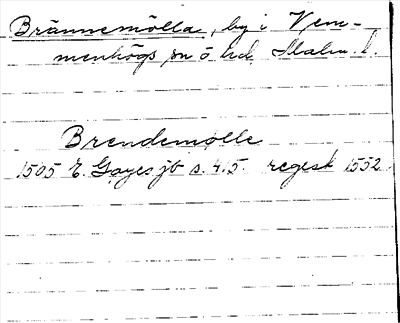 Brännemölla, by i Vem-
menhögs sn o. hd. Malm. l.
Brendemølle
1505 E. Gøyes jb s. 415. regest 1552